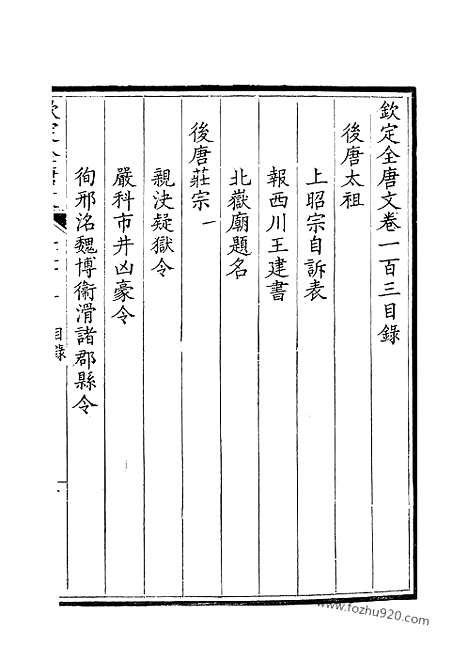 欽定全唐文卷一百三目錄
後唐太祖
上昭宗自訴表
報西川王建書
北嶽廟題名
後唐莊宗一
親決疑獄令
嚴科市井凶豪令
徇邢洺魏博衞滑諸郡縣令
目錄
www.fozhu920.com